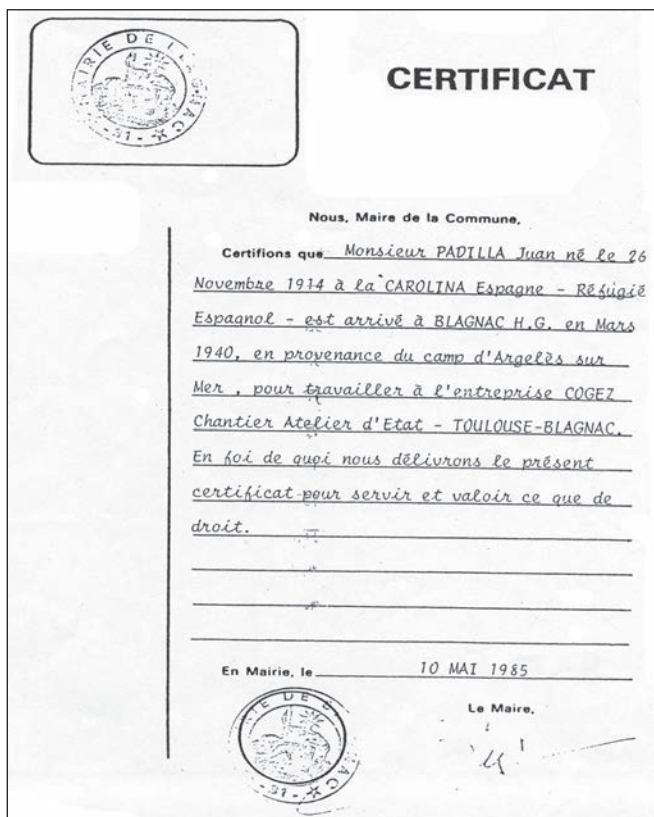 MAIRIE DE BLAGNAC
- 31 -
CERTIFICAT
Nous, Maire de la Commune,
Certifions que Monsieur PADILLA Juan né le 26
Novembre 1914 à la CAROLINA Espagne - Réfugié
Espagnol - est arrivé à BLAGNAC H.G. en Mars
1940, en provenance du camp d'Argelès sur
Mer , pour travailler à l'entreprise COGEZ
Chantier Atelier d'Etat - TOULOUSE-BLAGNAC.
En foi de quoi nous délivrons le présent
certificat pour servir et valoir ce que de
droit.
En Mairie, le 10 MAI 1985
Le Maire,